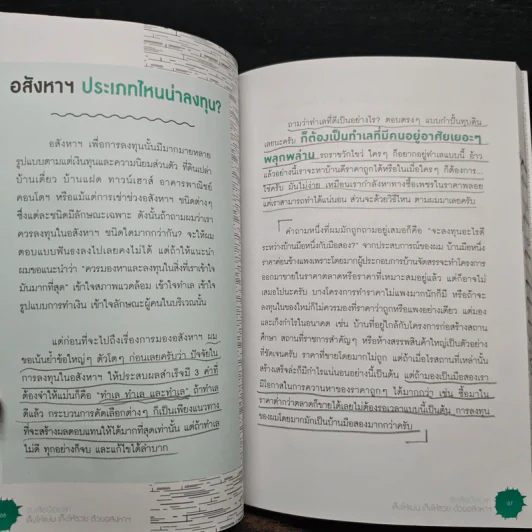 อสังหาฯ ประเภทไหนน่าลงทุน?
อสังหาฯ เพื่อการลงทุนนั้นมีมากมายหลาย
รูปแบบตามแต่เงินทุนและความนิยมส่วนตัว ที่ดินเปล่า
บ้านเดี่ยว บ้านแฝด ทาวน์เฮาส์ อาคารพาณิชย์
คอนโดฯ หรือแม้แต่การเช่าช่วงอสังหาฯ ชนิดต่างๆ
ซึ่งแต่ละชนิดมีลักษณะเฉพาะ ดังนั้นถ้าถามผมว่าเรา
ควรลงทุนในอสังหาฯ ชนิดใดมากกว่ากัน? จะให้ผม
ตอบแบบฟันธงลงไปเลยคงไม่ได้ แต่ถ้าให้แนะนำ
ผมขอแนะนำว่า "ควรมองหาและลงทุนในสิ่งที่เราเข้าใจ
มันมากที่สุด" เข้าใจสภาพแวดล้อม เข้าใจทำเล เข้าใจ
รูปแบบการทำเงิน เข้าใจลักษณะผู้คนในบริเวณนั้น
แต่ก่อนที่จะไปถึงเรื่องการมองอสังหาฯ ผม
ขอเน้นย้ำข้อใหญ่ๆ ตัวโตๆ ก่อนเลยครับว่า ปัจจัยใน
การลงทุนในอสังหาฯ ให้ประสบผลสำเร็จมี 3 คำที่
ต้องจำให้แม่นก็คือ "ทำเล ทำเล และทำเล" ถ้าทำเล
ดีแล้ว กระบวนการคัดเลือกต่างๆ ก็เป็นเพียงแนวทาง
ที่จะสร้างผลตอบแทนให้ได้มากที่สุดเท่านั้น แต่ถ้าทำเล
ไม่ดี ทุกอย่างก็จบ และแก้ไขได้ลำบาก
ถามว่าทำเลที่ดีเป็นอย่างไร? ตอบตรงๆ แบบกำปั้นทุบดิน
เลยนะครับ ก็ต้องเป็นทำเลที่มีคนอยู่อาศัยเยอะๆ
พลุกพล่าน รถราขวักไขว่ ใครๆ ก็อยากอยู่ทำเลแบบนี้ อ้าว
แล้วอย่างนี้เราจะหาบ้านดีราคาถูกได้หรือในเมื่อใครๆ ก็ต้องการ...
ใช่ครับ มันไม่ง่าย เหมือนเรากำลังหาทางซื้อเพชรในราคาพลอย
แต่เราสามารถทำได้แน่นอน ส่วนจะด้วยวิธีไหน ตามผมมาเลยครับ
คำถามหนึ่งที่ผมมักถูกถามอยู่เสมอก็คือ "จะลงทุนอะไรดี
ระหว่างบ้านมือหนึ่งกับมือสอง?" จากประสบการณ์ของผม บ้านมือหนึ่ง
ราคาค่อนข้างแพงเพราะโดยมากผู้ประกอบการบ้านจัดสรรจะทำโครงการ
ออกมาขายในราคาตลาดหรือราคาที่เหมาะสมอยู่แล้ว แต่ก็อาจไม่
เสมอไปนะครับ บางโครงการทำราคาไม่แพงมากนักก็มี หรือถ้าจะ
ลงทุนในของใหม่ก็ไม่ควรมองที่ราคาว่าถูกหรือแพงอย่างเดียว แต่มอง
และเก็งกำไรในอนาคต เช่น บ้านที่อยู่ใกล้กับโครงการก่อสร้างสถาน
ศึกษา สถานที่ราชการสำคัญๆ หรือห้างสรรพสินค้าใหญ่เป็นตัวอย่าง
ที่ชัดเจนครับ ราคาที่ซื้อโดยมากไม่ถูก แต่ถ้าเมื่อไรสถานที่เหล่านั้น
สร้างเสร็จล่ะก็มีกำไรแน่นอนอย่างนี้เป็นต้น แต่ถ้ามองเป็นมือสองเรา
มีโอกาสในการควานหาของราคาถูกๆ ได้มากกว่า เช่น ซื้อมาใน
ราคาต่ำกว่าตลาดก็ขายได้เลยไม่ต้องรอเวลาแบบนี้เป็นต้น การลงทุน
ของผมโดยมากมักเป็นบ้านมือสองมากกว่าครับ